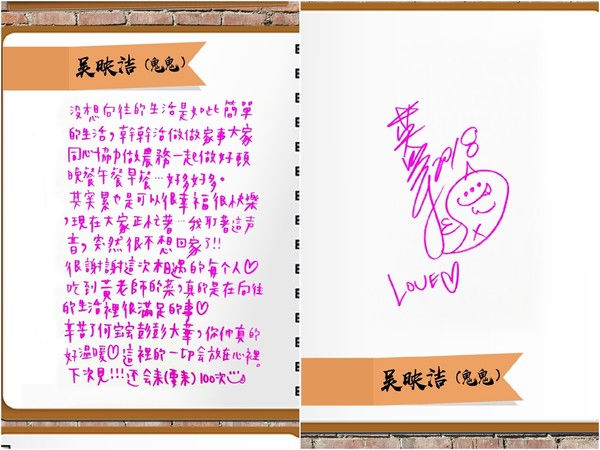 吴映洁(鬼鬼)
没想向往的生活是如此簡單
的生活,幹幹活做做家事大家
同心協力做農務一起做好頓
晚餐午餐早餐…好多好多。
其實累也是可以很幸福很快樂
,現在大家正忙著…我聽著這声
音,突然很不想回家了!!
很謝謝這次相遇的每个人♡
吃到黃老師的菜,真的是在向往
的生活裡很滿足的事♡
辛苦了何宝宝彭彭大華,你們真的
好溫暖♡這裡的一切会放在心裡。
下次見!!!还会來(要來)100次
2018
LOVE♡
吴映洁(鬼鬼)